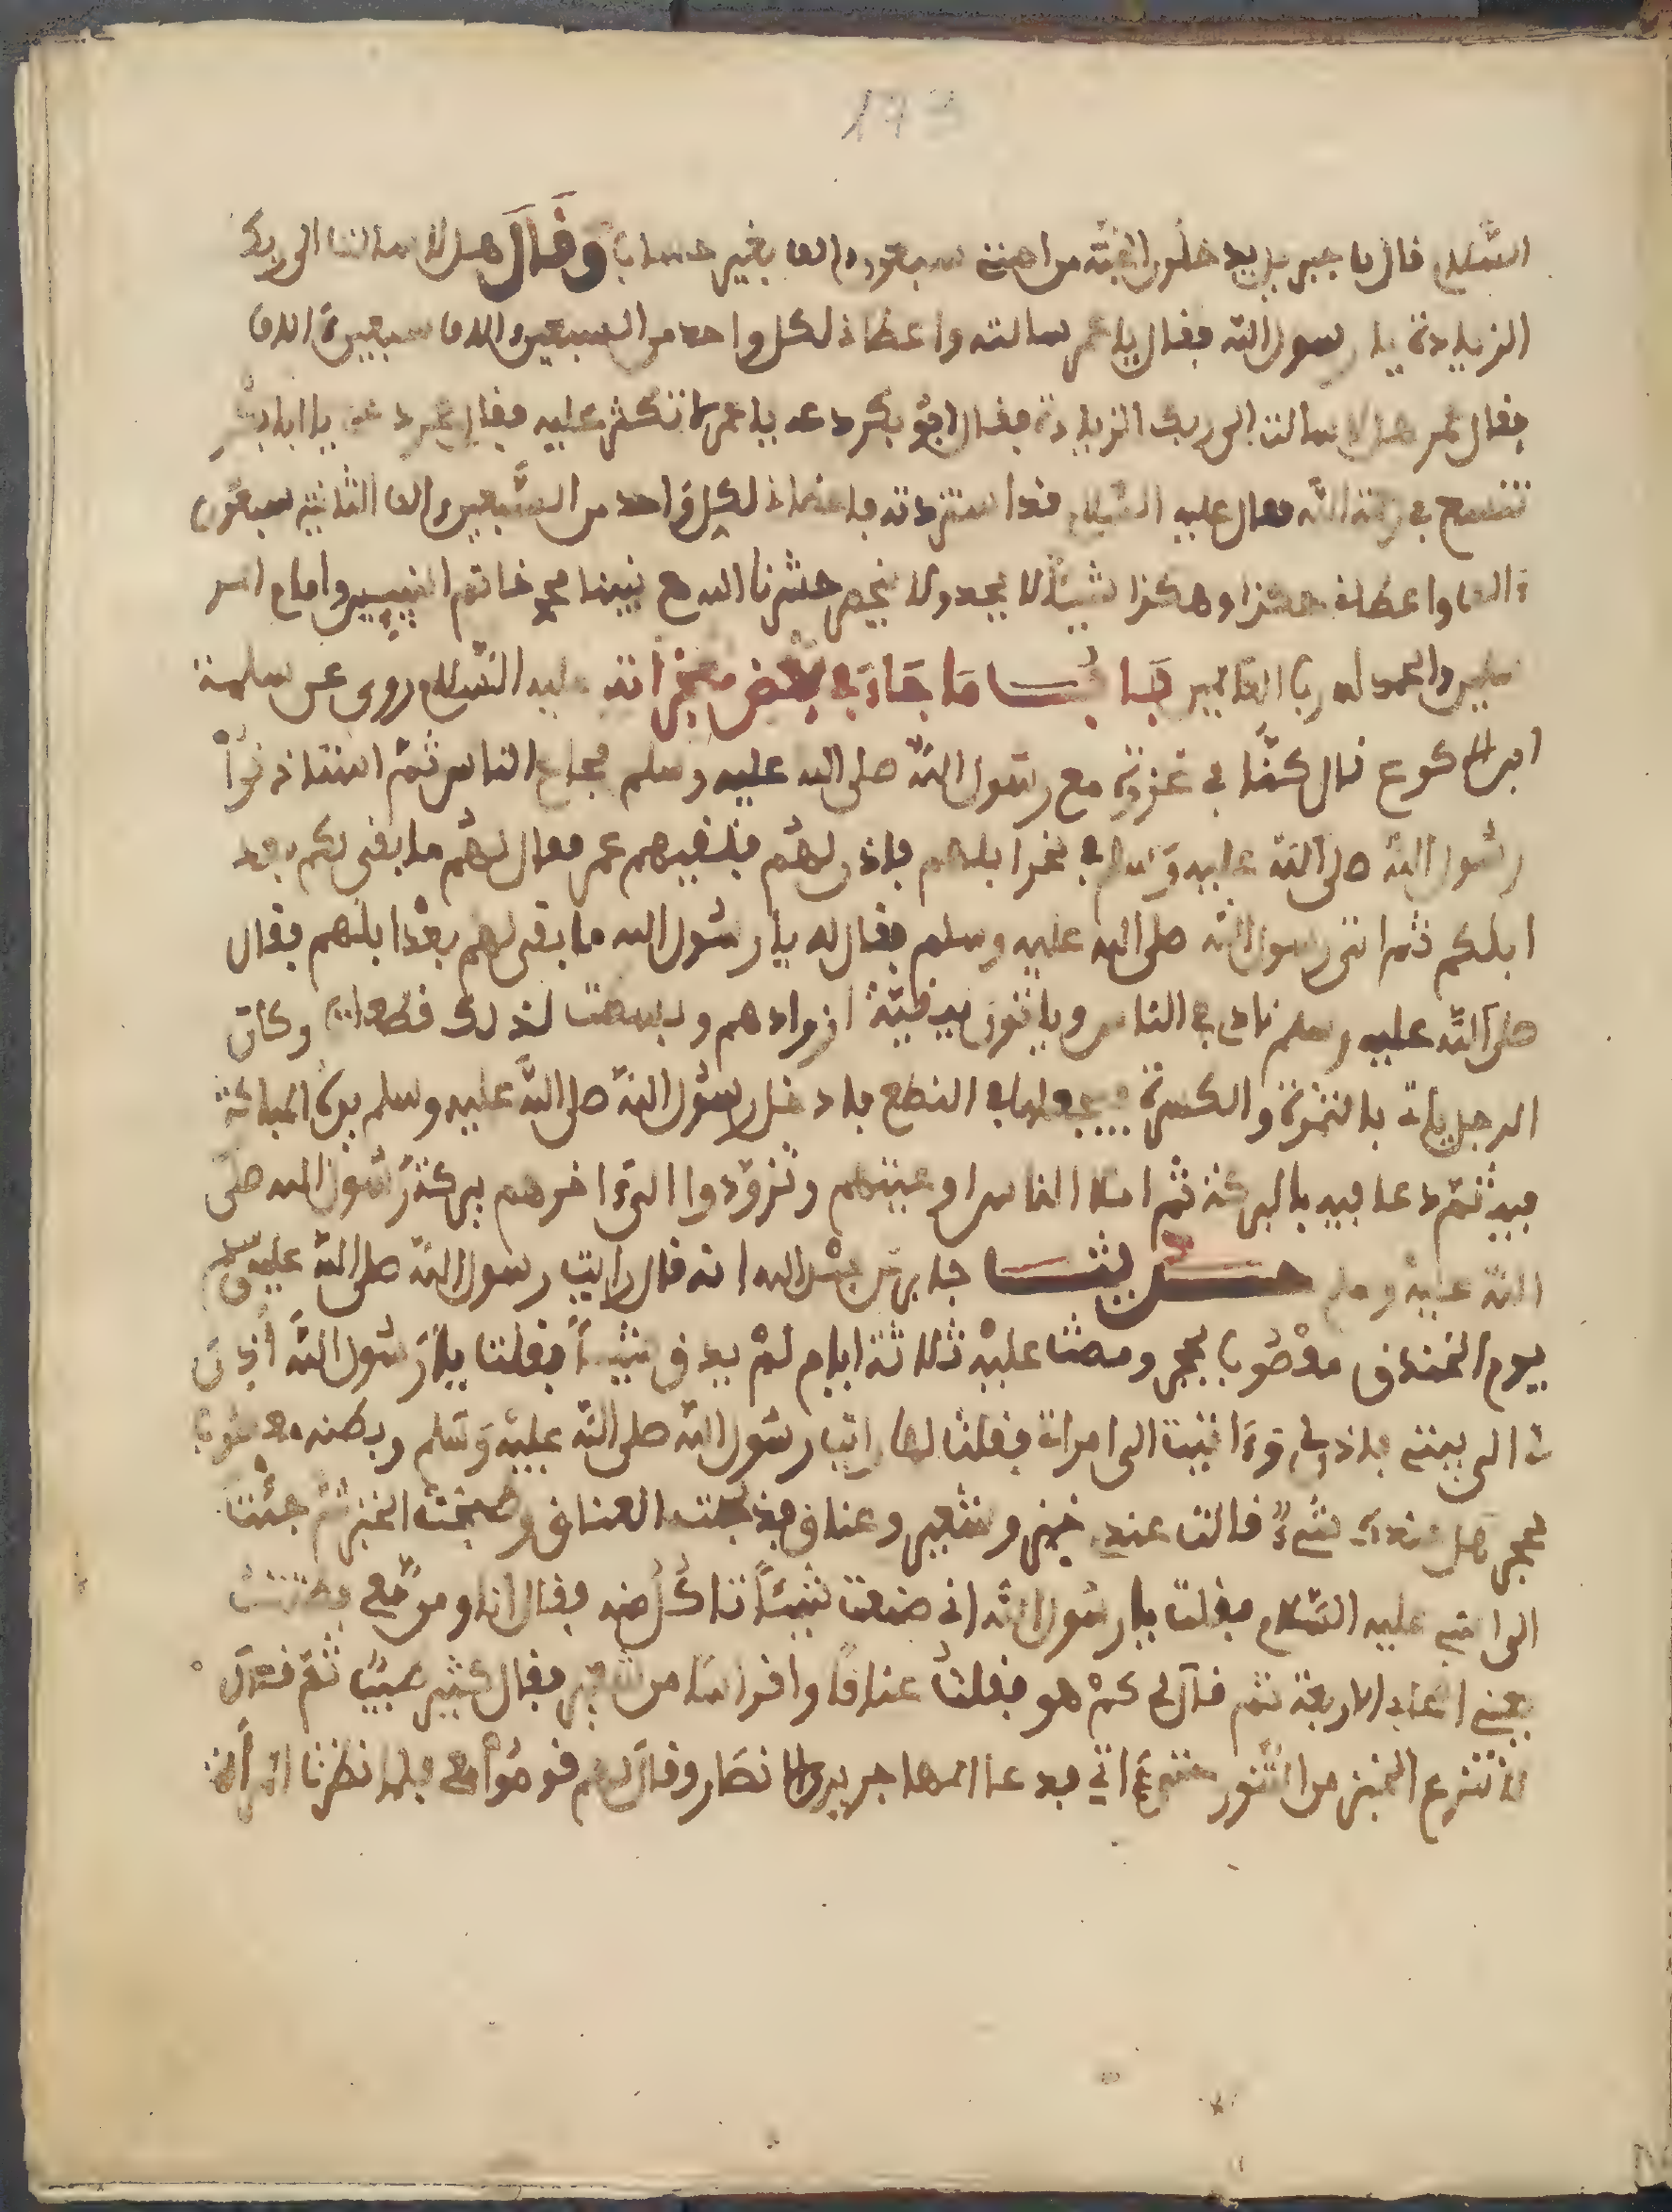 173
السلام قال يا جبريل يدخلون الجنة من امتي سبعون الفا بغير حساب وقال هلا سالت الى ربك
الزيادة يا رسول الله فقال يا عمر سالته واعطاني لكل واحد من السبعين الفا سبعين الفا
فقال عمر هلا سالت الى ربك الزيادة فقال ابو بكر دعه يا عمر لا تكثر عليه فقال عمر دعني يا ابا بكر
نتفسح في رحمة الله فقال عليه السلام قد استزدته فاعطاني لكل واحد من السبعين الفا الثانية سبعون
الفا واعطاني هكذا وهكذا شيئا لا يحد ولا يحصى حشرنا الله مع نبينا محمد خاتم النبيين وامام المر
سلين والحمد لله رب العالمين باب ما جاء في بعض معجزاته عليه السلام روى عن سلمة
ابن الاكوع قال كنا في غزوة مع رسول الله صلى الله عليه وسلم فجاع الناس ثم استاذنوا
رسول الله صلى الله عليه وسلم في نحر ابلهم فاذن لهم فلقيهم عمر فقال لهم ما بقي لكم بعد
ابلكم ثم اتى رسول الله صلى الله عليه وسلم فقال له يا رسول الله ما بقى لهم بعد ابلهم فقال
صلى الله عليه وسلم نادي في الناس وياتون ببقية ازوادهم وبسطت لذلك قطعا وكان
الرجل ياتي بالتمرة والكسرة فيجعلها في النطع فادخل رسول الله صلى الله عليه وسلم يده المباركة
فيه ثم دعا فيه بالبركة ثم املا الناس اوعيتهم وتزودوا الى ءاخرهم ببركة رسول الله صلى
الله عليه وسلم حديث جابر بن عبد الله انه قال رايت رسول الله صلى الله عليه وسلم
يوم الخندق معصوب بحجر ومضت عليه ثلاثة ايام لم يذق شيئا فقلت يا رسول الله أذن
لي الى بيتي فاذن لي وءاتيت الى امراتي فقلت لها رايت رسول الله صلى الله عليه وسلم وبطنه معصوب
بحجر هل عندك شيء قالت عندي خبز وشعير وعناق فذبحت العناق وطبخت الخبز ثم جئت
الى النبي عليه السلام فقلت يا رسول الله اني صنعت شيئا تاكل منه فقال انا ومن معي فقلت
يعني اصحابي الاربعة ثم قال لي كم هو فقلت عناقا واقراسا من شعير فقال كثير طيب ثم قال
لا تنزع الخبز من التنور حتى ءاتي فدعا المهاجرين والانصار وقال لهم قوموا معي فلما نظرنا امراته